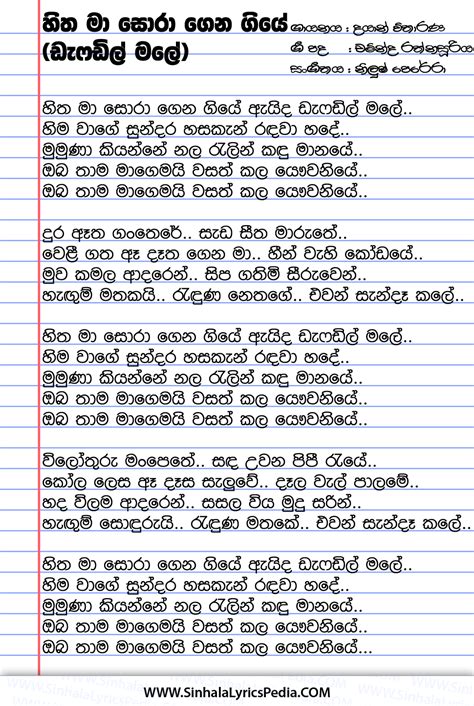 හිත මා සොරා ගෙන ගියේ
(ඩැෆඩිල් මලේ)
ගායනය : දයාන් විතාරණ
ගී පද : වසන්ත රත්නසූරිය
සංගීතය : නිලූෂ් පෙරේරා
හිත මා සොරා ගෙන ගියේ ඇයිද ඩැෆඩිල් මලේ..
හිම වාගේ සුන්දර හසකැන් රඳවා හදේ..
මුමුණා කියන්නේ නල රැලින් කඳු මානයේ..
ඔබ තාම මාගෙමයි වසත් කල යෞවනියේ..
ඔබ තාම මාගෙමයි වසත් කල යෞවනියේ..
දුර ඈත ගංතෙරේ.. සැඩ සීත මාරුතේ..
වෙළී ගත ඈ දෑත ගෙන මා.. හීන් වැහි කෝඩයේ..
මුව කමල ආදරෙන්.. සිප ගතිමි සීරුවෙන්..
හැඟුම් මතකයි.. රැඳුණ නෙතගේ.. එවන් සැන්දෑ කලේ..
හිත මා සොරා ගෙන ගියේ ඇයිද ඩැෆඩිල් මලේ..
හිම වාගේ සුන්දර හසකැන් රඳවා හදේ..
මුමුණා කියන්නේ නල රැලින් කඳු මානයේ..
ඔබ තාම මාගෙමයි වසත් කල යෞවනියේ..
ඔබ තාම මාගෙමයි වසත් කල යෞවනියේ..
විලෝතුරු මංපෙතේ.. සඳ උවන පිපී රැයේ..
කෝල ලෙස ඈ දෑස සැලුවේ.. දෑල වැල් පාලමේ..
හද විලම ආදරෙන්.. සසල විය මුදු සරින්..
හැඟුම් සොඳුරුයි.. රැඳුණ මතකේ.. එවන් සැන්දෑ කලේ..
හිත මා සොරා ගෙන ගියේ ඇයිද ඩැෆඩිල් මලේ..
හිම වාගේ සුන්දර හසකැන් රඳවා හදේ..
මුමුණා කියන්නේ නල රැලින් කඳු මානයේ..
ඔබ තාම මාගෙමයි වසත් කල යෞවනියේ..
ඔබ තාම මාගෙමයි වසත් කල යෞවනියේ...
www.SinhalaLyricsPedia.COM